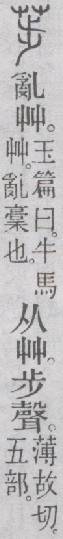 荹亂艸。玉篇曰。牛馬艸。亂稾也。从艸步聲。薄故切。五部。